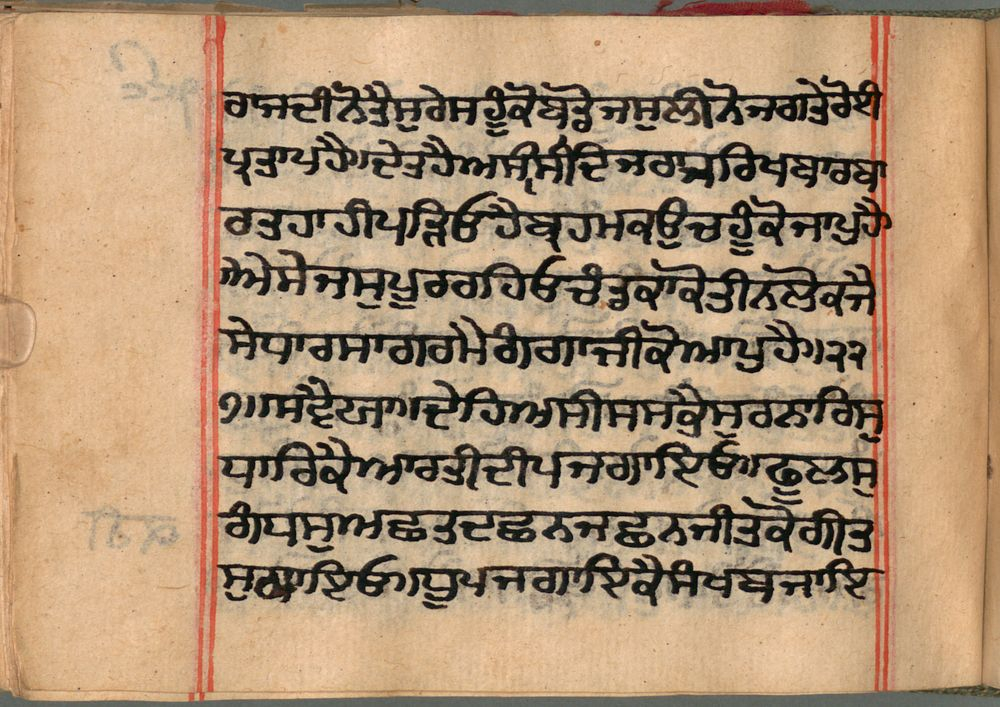 ਰਾਜਦੀਨੋਤੈਸੁਰੇਸਹੂੰਕੋਬਡੋਜਸੁਲੀਨੋਜਗਤੇਰੋਈ
ਪ੍ਰਤਾਪਹੈ॥ਦੇਤਹੈਅਸੀਸਦਿਜਰਾਜਰਿਖਬਾਰਬਾ
ਰਤਹਾਹੀਪੜ੍ਹਿਓਹੈਬ੍ਰਹਮਕਉਚਹੂੰਕੋਜਾਪੁਹੈ
॥ਐਸੋਜਸੁਪੂਰਰਹਿਓਚੰਡਕਾਕੋਤੀਨਲੋਕਜੈ
ਸੇਧਾਰਸਾਗਰਮੈਗੰਗਾਜੀਕੋਆਪੁਹੈ॥੨੨
੭॥ਸਵੈਯਾ॥ਦੇਹਿਅਸੀਸਸਭੈਸੁਰਨਾਰਿਸੁ
ਧਾਰਿਕੈਆਰਤੀਦੀਪਜਗਾਇਓ॥ਫੂਲਸੁ
ਗੰਧਸੁਅਛਤਦਛਨਜਛਨਜੀਤਕੋਗੀਤ
ਸੁਨਾਇਓ॥ਧੂਪਜਗਾਇਕੈਸੰਖਬਜਾਇ